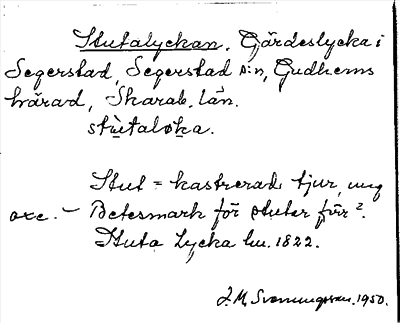 Stutalyckan. Gärdeslycka i
Segerstad, Segerstad s:n, Gudhems
härad, Skarab. län.
stutaløka.
Stut = kastrerad tjur, ung
oxe. – Betesmark för stutar förr?
Stuta Lycka lm. 1822.
J.M. Svenungsson. 1950.